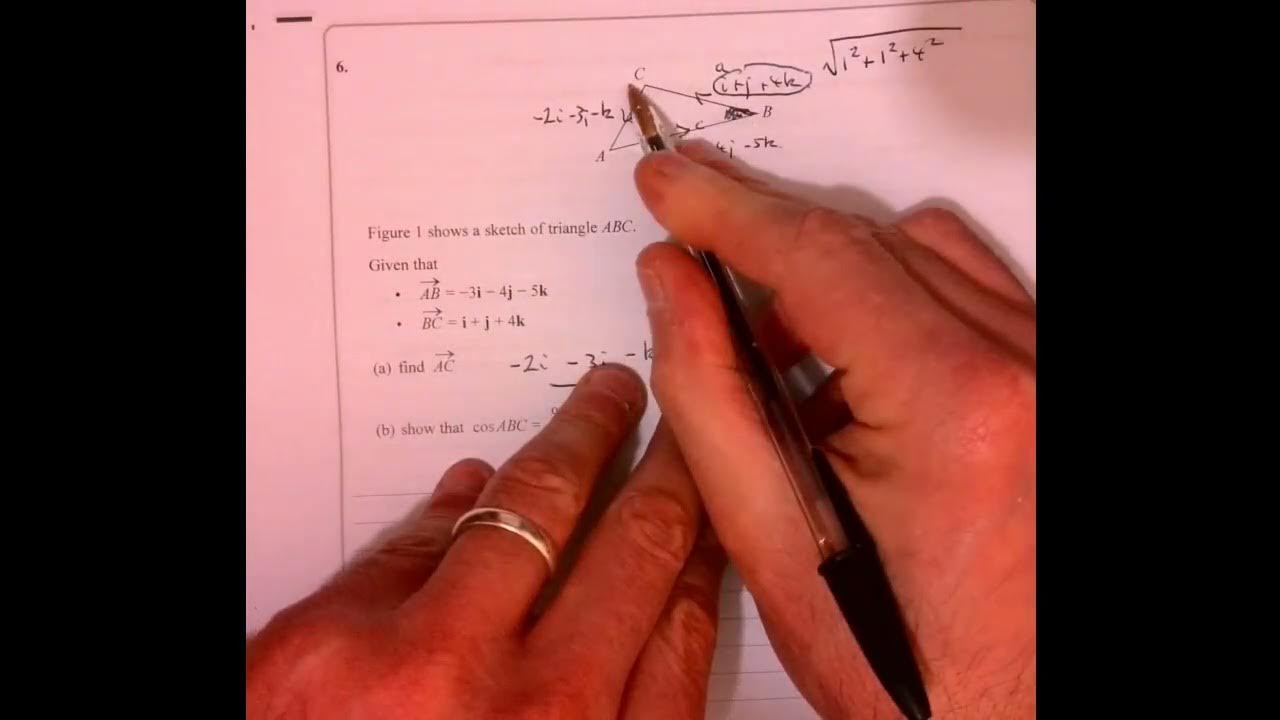 6.
C
a
i+j+4k
√1²+1²+4²
-2i-3j-k
c
B
A
4j-5k
Figure 1 shows a sketch of triangle ABC.
Given that
• AB = −3i − 4j − 5k
• BC = i + j + 4k
(a) find AC -2i -3j -k
(b) show that cos ABC =